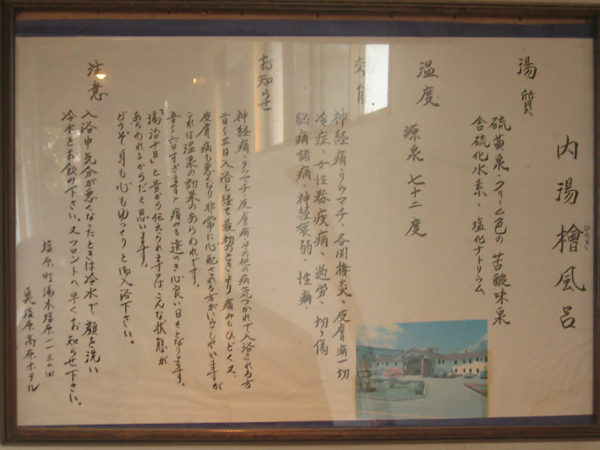 内湯檜風呂
ひのき
湯質
硫黄泉・クリーム色の苦酸味泉
含硫化水素、塩化ナトリウム
温度 源泉 七十二度
神経痛・リウマチ、各関接炎、皮膚病一切
冷症、女性器疾病、過労、切り傷
脳病諸病、神経衰弱、性病
お知らせ
神経痛・リウマチ皮膚病その他の病気つかれで入浴される方
二日〜三日入浴し経て最初のときより痛みもひどく又
皮膚病も悪くなり非常に心配される方がいらっしゃいますが
これは温泉の効果のあらわれです。
五日〜六日すぎますと痛みも遠のき心良い日々となります。
湯治十日、と昔から伝えられますのは、こんな状態が
あらわれるからだと思います。
どうぞ身も心もゆっくりと御入浴下さい。
注意
入浴中気分が悪くなったときは冷水で顔を洗い
冷水をお飲み下さい。又フロントへ早くお知らせ下さい。
塩原町湯本塩原一一三の四
奥塩原高原ホテル